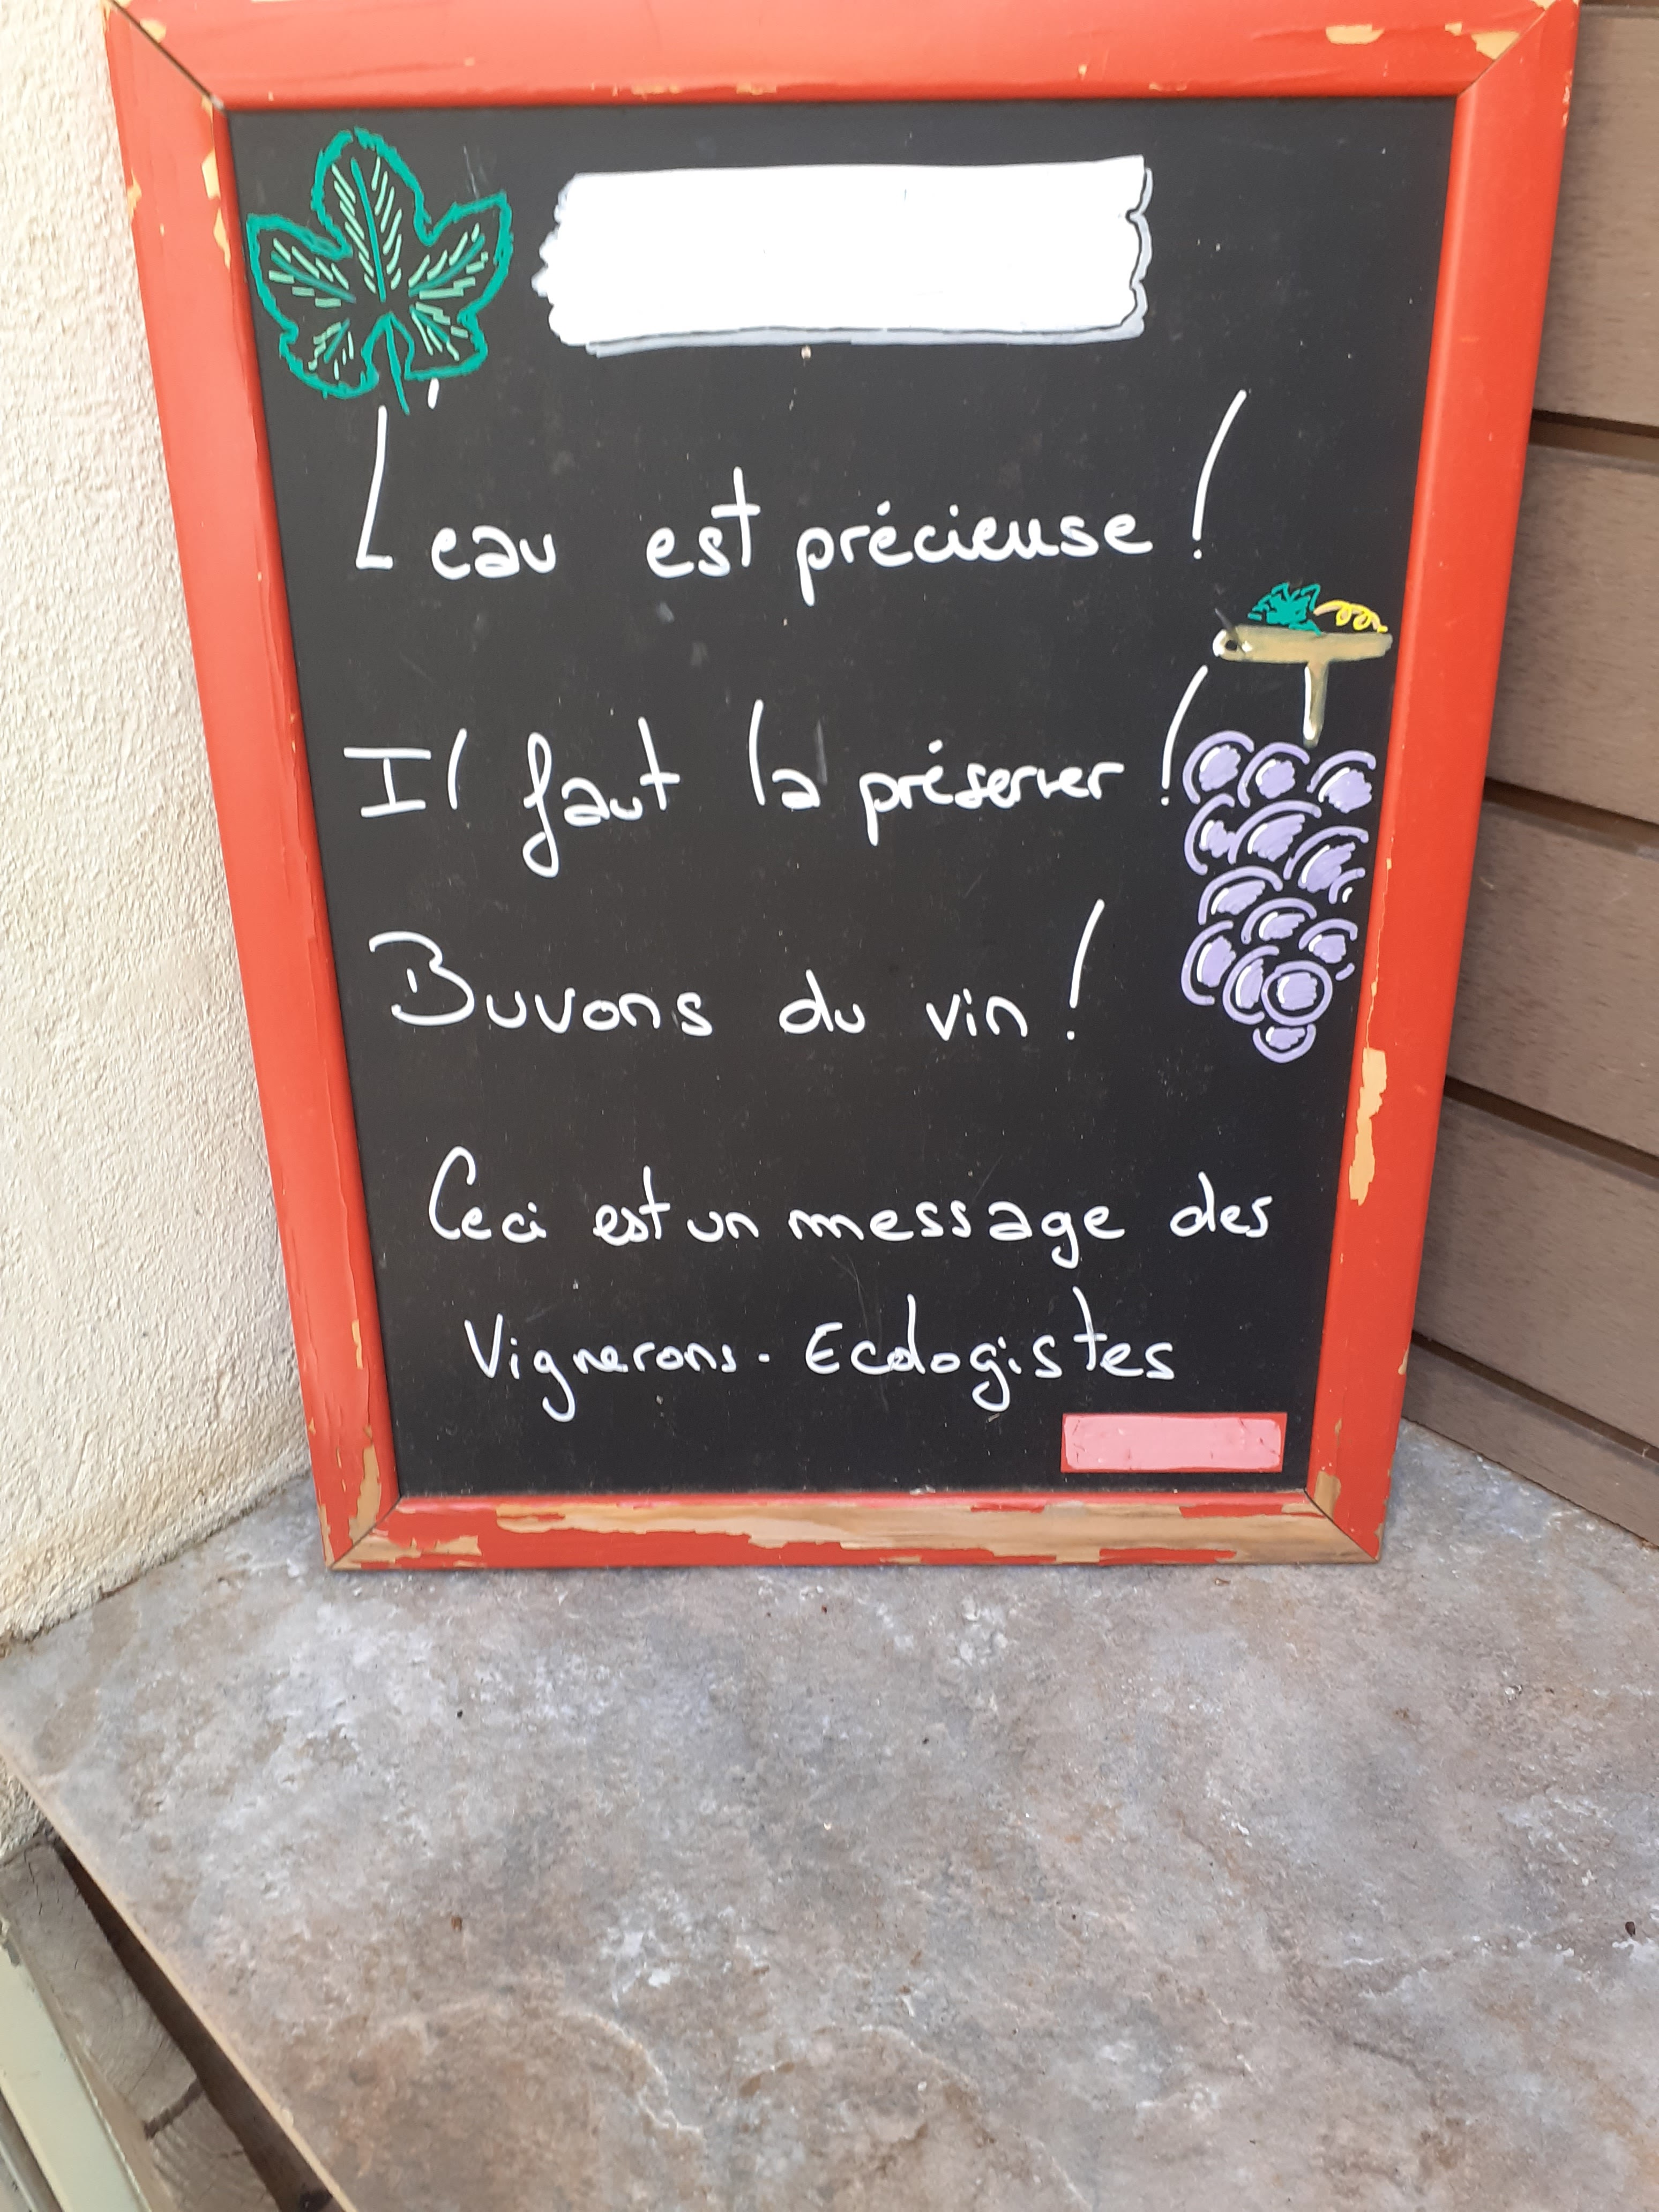 L'eau est précieuse !
Il faut la préserver !
Buvons du vin !
Ceci est un message des
Vignerons - Ecologistes